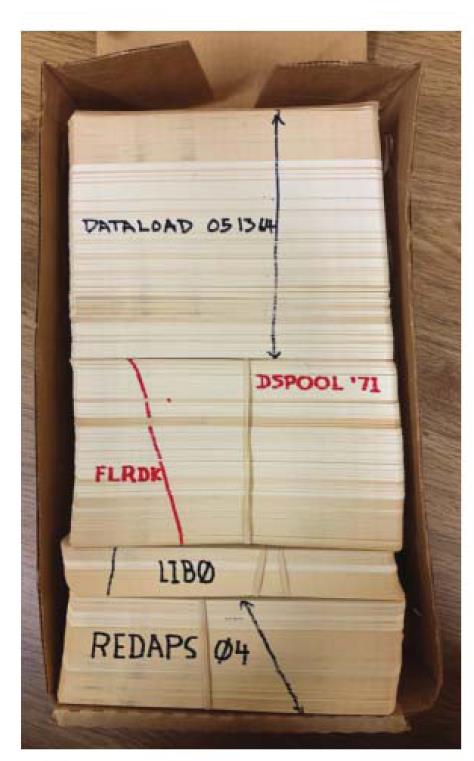 DATALOAD 051364
DSPOOL '71
FLRDK
LIBØ
REDAPS Ø4